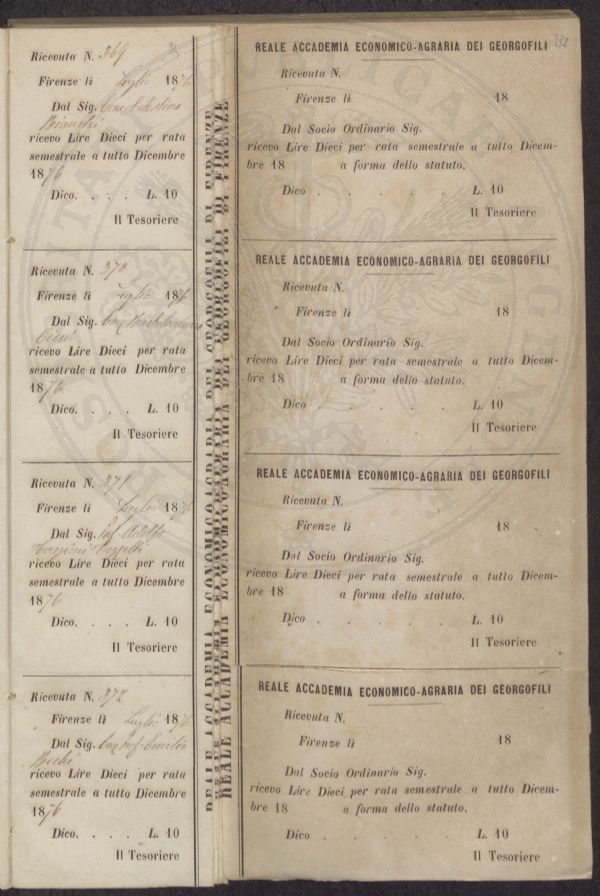 Ricevuta N. 369
Firenze li Luglio 1876
Dal Sig.
Bianchi
ricevo Lire Dieci per rata
semestrale a tutto Dicembre
1876
Dico. . . . L. 10
Il Tesoriere
Ricevuta N. 370
Firenze li Luglio 1876
Dal Sig.
ricevo Lire Dieci per rata
semestrale a tutto Dicembre
1876
Dico. . . . L. 10
Il Tesoriere
Ricevuta N. 371
Firenze li Luglio 1876
Dal Sig. Prof. Adolfo
Targioni Tozzetti
ricevo Lire Dieci per rata
semestrale a tutto Dicembre
1876
Dico. . . . L. 10
Il Tesoriere
Ricevuta N. 372
Firenze li Luglio 1876
Dal Sig. Cav. Prof. Emilio
Bechi
ricevo Lire Dieci per rata
semestrale a tutto Dicembre
1876
Dico. . . . L. 10
Il Tesoriere
REALE ACCADEMIA ECONOMICO-AGRARIA DEI GEORGOFILI DI FIRENZE
REALE ACCADEMIA ECONOMICO-AGRARIA DEI GEORGOFILI DI FIRENZE
REALE ACCADEMIA ECONOMICO-AGRARIA DEI GEORGOFILI
Ricevuta N.
Firenze li 18
Dal Socio Ordinario Sig.
ricevo Lire Dieci per rata semestrale a tutto Dicem-
bre 18 a forma dello statuto.
Dico . . . . L. 10
Il Tesoriere
REALE ACCADEMIA ECONOMICO-AGRARIA DEI GEORGOFILI
Ricevuta N.
Firenze li 18
Dal Socio Ordinario Sig.
ricevo Lire Dieci per rata semestrale a tutto Dicem-
bre 18 a forma dello statuto.
Dico . . . . L. 10
Il Tesoriere
REALE ACCADEMIA ECONOMICO-AGRARIA DEI GEORGOFILI
Ricevuta N.
Firenze li 18
Dal Socio Ordinario Sig.
ricevo Lire Dieci per rata semestrale a tutto Dicem-
bre 18 a forma dello statuto.
Dico . . . . L. 10
Il Tesoriere
REALE ACCADEMIA ECONOMICO-AGRARIA DEI GEORGOFILI
Ricevuta N.
Firenze li 18
Dal Socio Ordinario Sig.
ricevo Lire Dieci per rata semestrale a tutto Dicem-
bre 18 a forma dello statuto.
Dico . . . . L. 10
Il Tesoriere